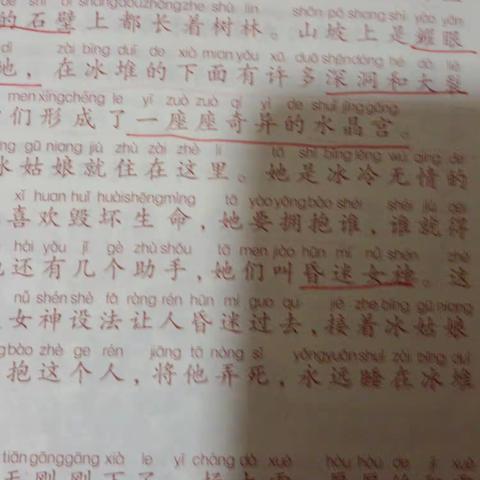 de shí bì shang dōu zhǎng zhe shù lín shān pō shang shì yào yǎn
的石壁上都长着树林。山坡上是耀眼
dì zài bīng duī de xià mian yǒu xǔ duō shēn dòng hé dà liè
地，在冰堆的下面有许多深洞和大裂
men xíng chéng le yí zuò zuò qí yì de shuǐ jīng gōng
们形成了一座座奇异的水晶宫。
gū niang jiù zhù zài zhè li tā shì bīng lěng wú qíng de
冰姑娘就住在这里。她是冰冷无情的
xǐ huan huǐ huài shēng mìng tā yào yōng bào shéi shéi jiù děi
喜欢毁坏生命，她要拥抱谁，谁就得
hái yǒu jǐ gè zhù shǒu tā men jiào hūn mí nǚ shén zhè
还有几个助手，她们叫昏迷女神。这
nǚ shén shè fǎ ràng rén hūn mí guo qu jiē zhe bīng gū niang
女神设法让人昏迷过去，接着冰姑娘
bào zhè ge rén jiāng tā nòng sǐ yǒng yuǎn shuì zài bīng duī
抱这个人，将他弄死，永远睡在冰堆
tiān gāng gāng xià le yì chǎng dà xuě hòu hòu de jī xuě